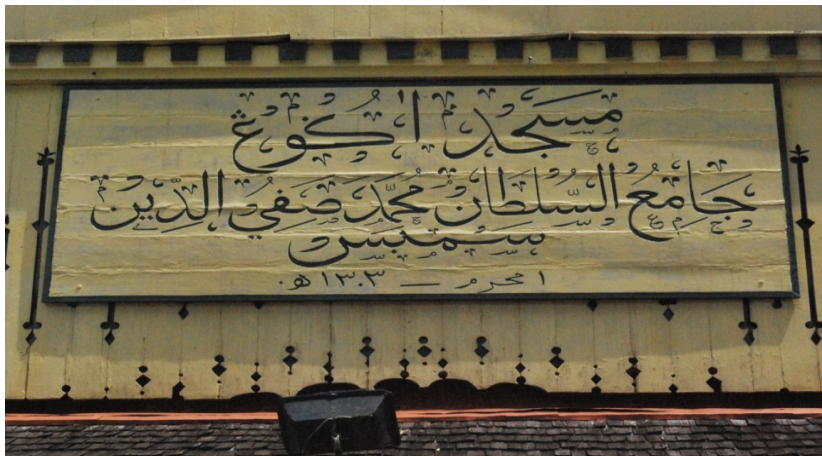 مسجد اݢوڠ
جَامِعُ السُّلطَان مُحَمَّد صَفِيُ الدِّين
سمبس
١ محرم — ١٣٠٣ ھ.